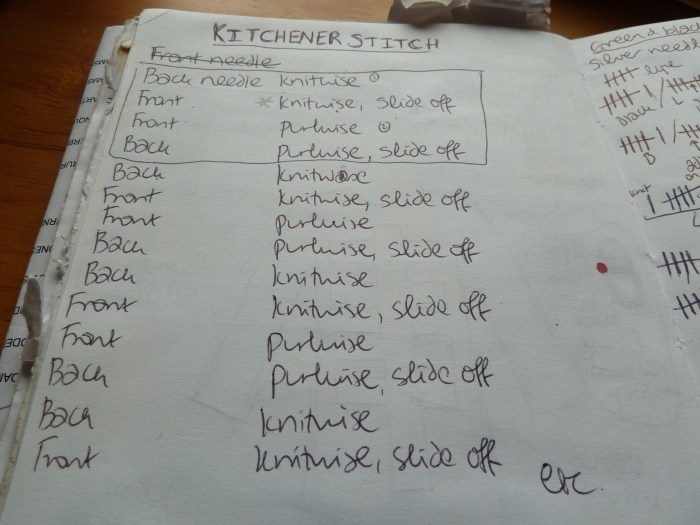 KITCHENER STITCH
Front needle
Back needle knitwise ①
Front * knitwise, slide off
Front purlwise ②
Back purlwise, slide off
Back knitwise
Front knitwise, slide off
Front purlwise
Back purlwise, slide off
Back knitwise
Front knitwise, slide off
Front purlwise
Back purlwise, slide off
Back knitwise
Front knitwise, slide off
etc.
Green & blac
Silver need